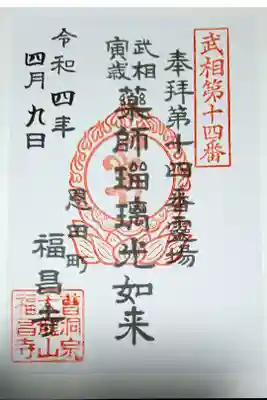 武相第十四番
奉拝第十四番霊場
武相
寅歳
薬師瑠璃光如来
恩田町
福昌寺
令和四年
四月九日
曹洞宗
福昌寺